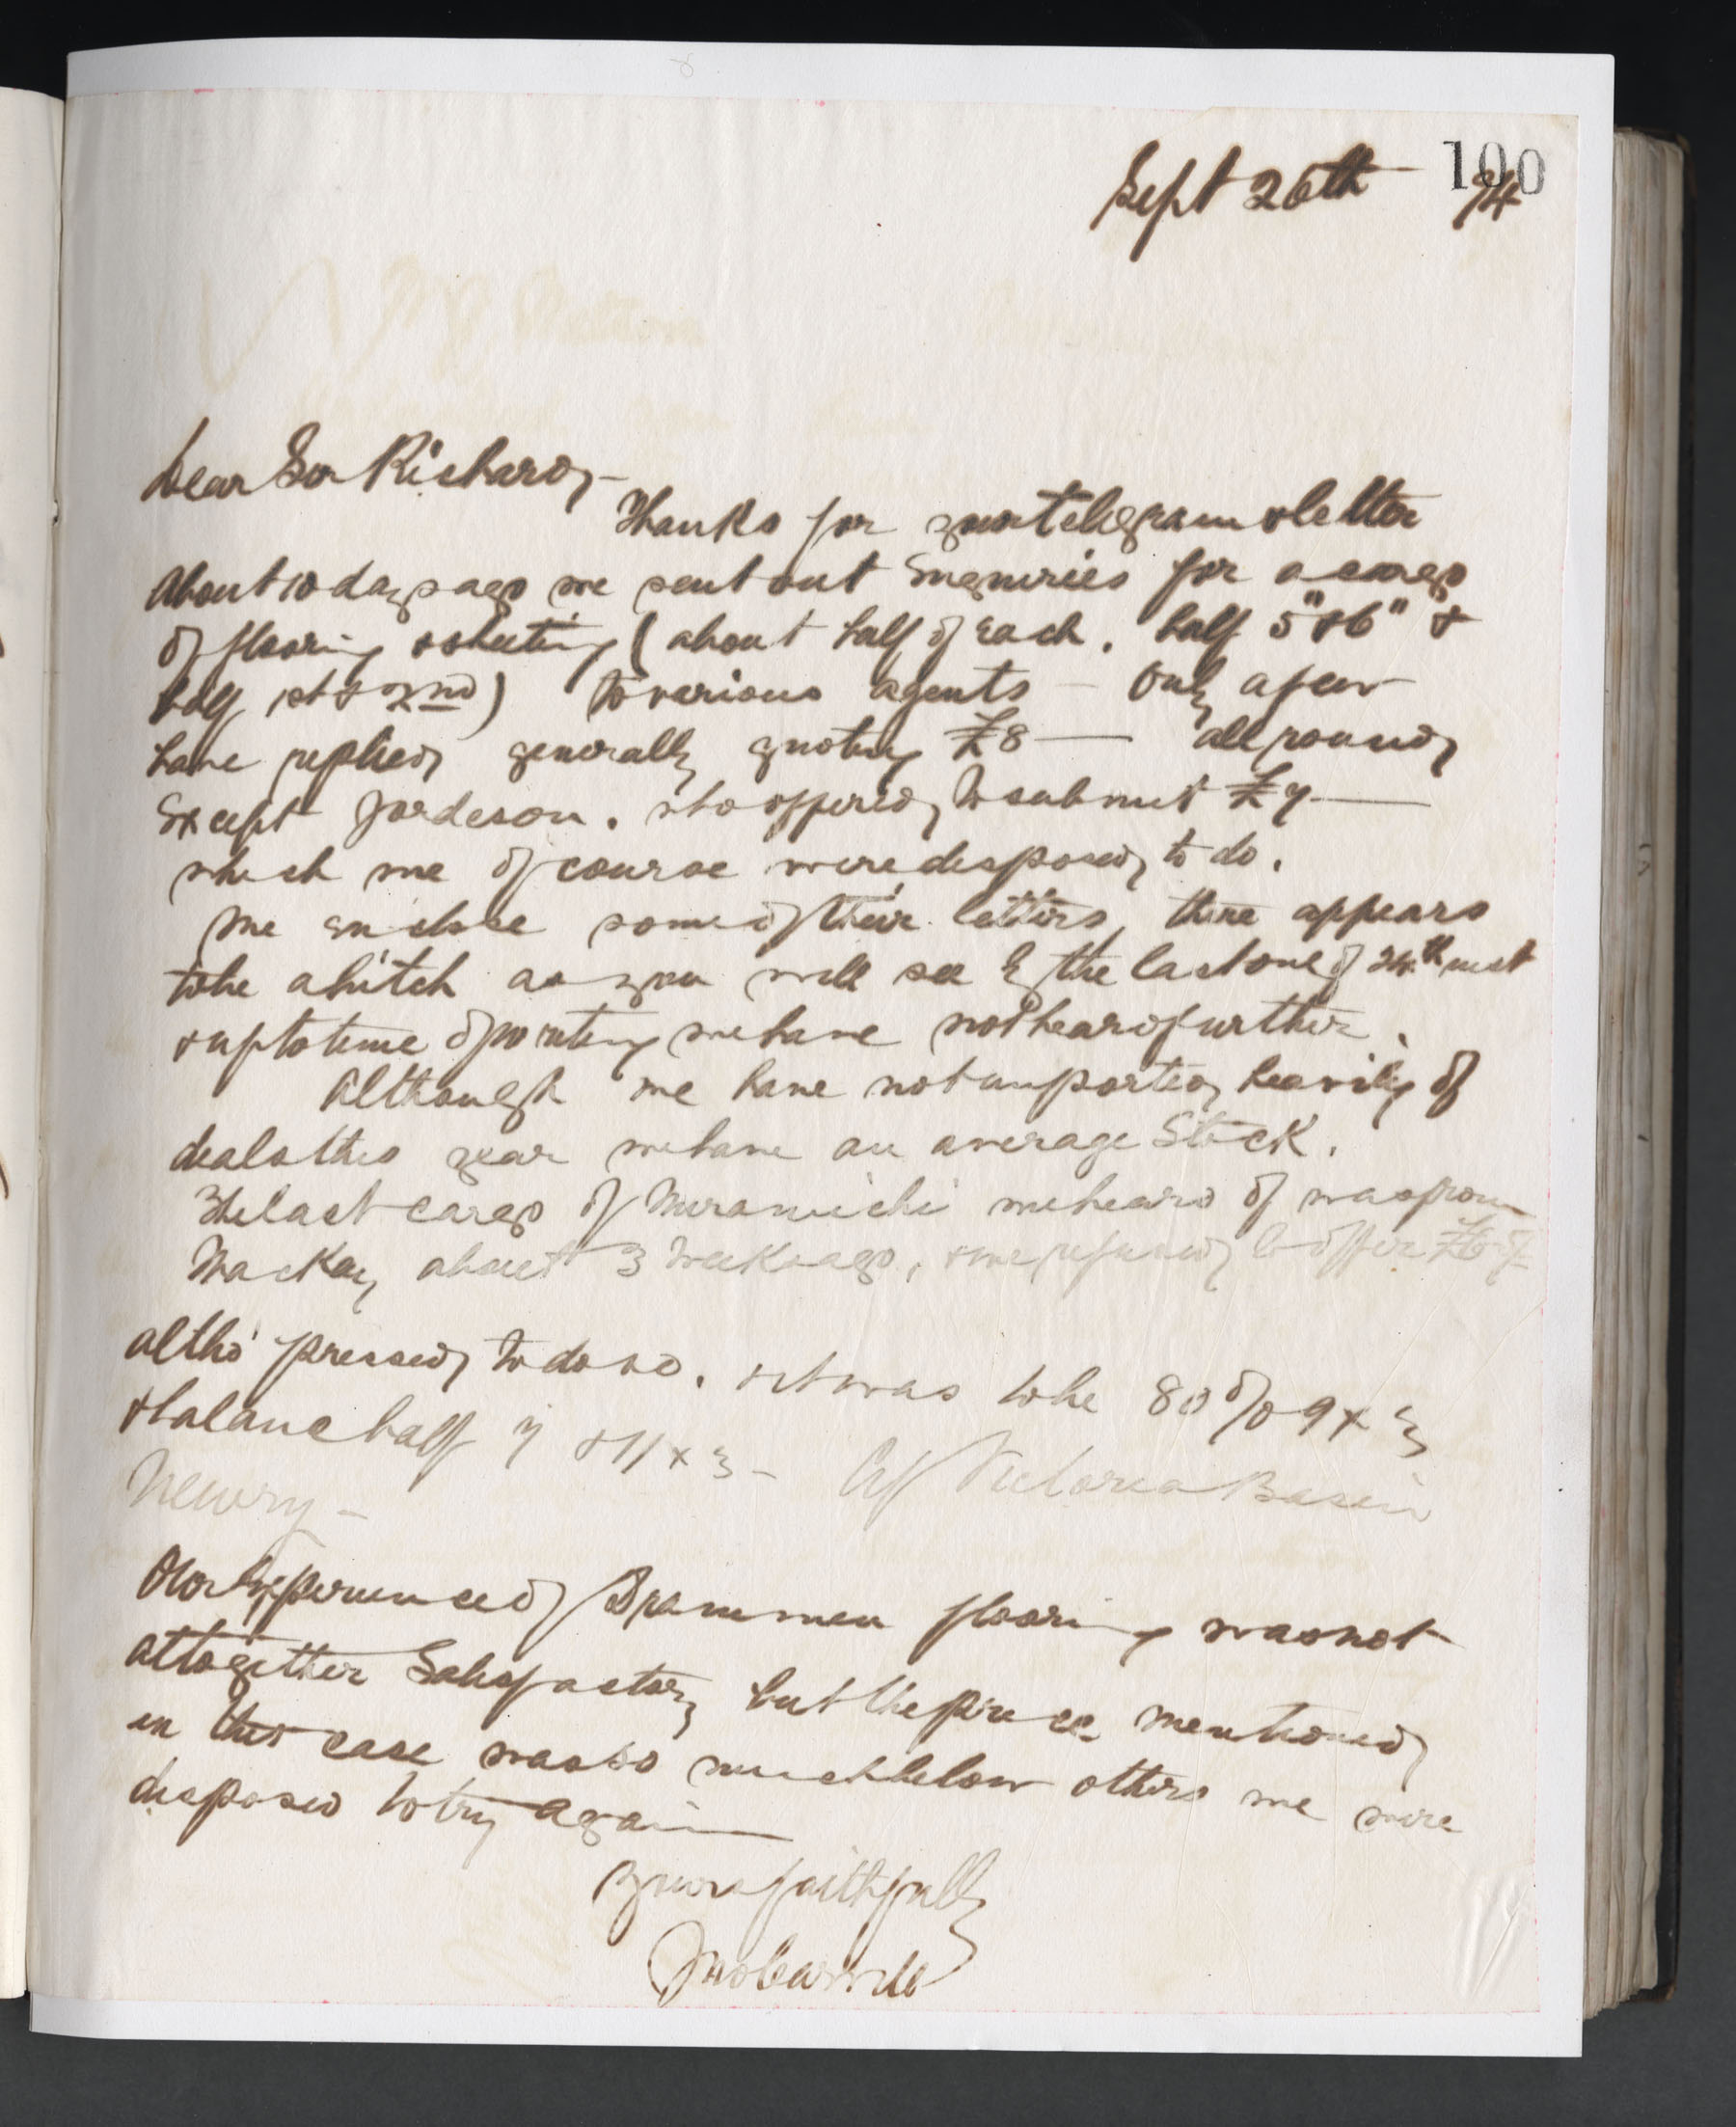 100
Sept 26th 94
Dear Sir Richard,
Thanks for your telegram & letter
About 10 days ago we sent out Enquiries for a cargo
of flooring & sheeting (about half of each. half 5" & 6" &
half 1st & 2nd) to various agents — Only a few
have replied generally quoting £8 — all round
Except Jordeson. who offered to submit £7 —
which we of course were disposed to do.
We enclose some of their letters, there appears
to be a hitch as you will see by the last one of 24th inst
& up to time of writing we have not heard further.
Although we have not imported heavily of
deals this year we have an average Stock.
The last cargo of Miramichi we heard of was from
Mackay about 3 weeks ago, & we refused to offer £6
altho' pressed to do so. & it was to be 80% 9 x 3
& balance half 7 & 11 x 3 — Cif Victoria Basin
Newry —
Our Experience of Drammen flooring was not
altogether Satisfactory but the price mentioned
in this case was so much below others we were
disposed to try again —
Yours faithfully
Jno Carvill